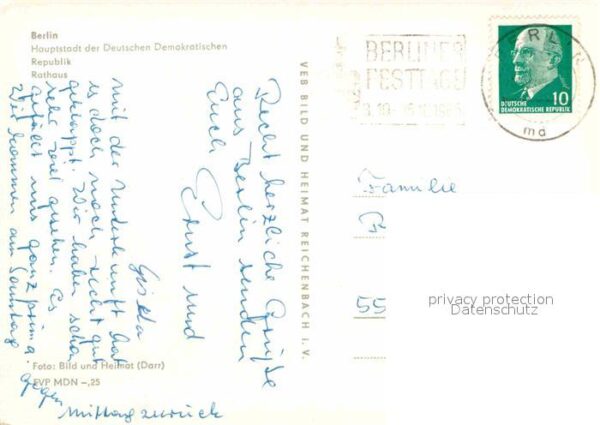 Berlin
Hauptstadt der Deutschen Demokratischen
Republik
Rathaus
VEB BILD UND HEIMAT REICHENBACH I. V.
BERLINER
FESTTAGE
BERLIN
md
DEUTSCHE
DEMOKRATISCHE REPUBLIK
10
Recht herzliche Grüße
aus Berlin senden
Euch
Ernst und
Gisela
Mit der Unterkunft hat
es doch noch recht gut
geklappt. Wir haben schon
sehr viel gesehen. Es
gefällt uns ganz prima.
Wir kommen am Sonntag
gegen
Mittag zurück
Familie
55
privacy protection
Datenschutz
Foto: Bild und Heimat (Darr)
EVP MDN -,25